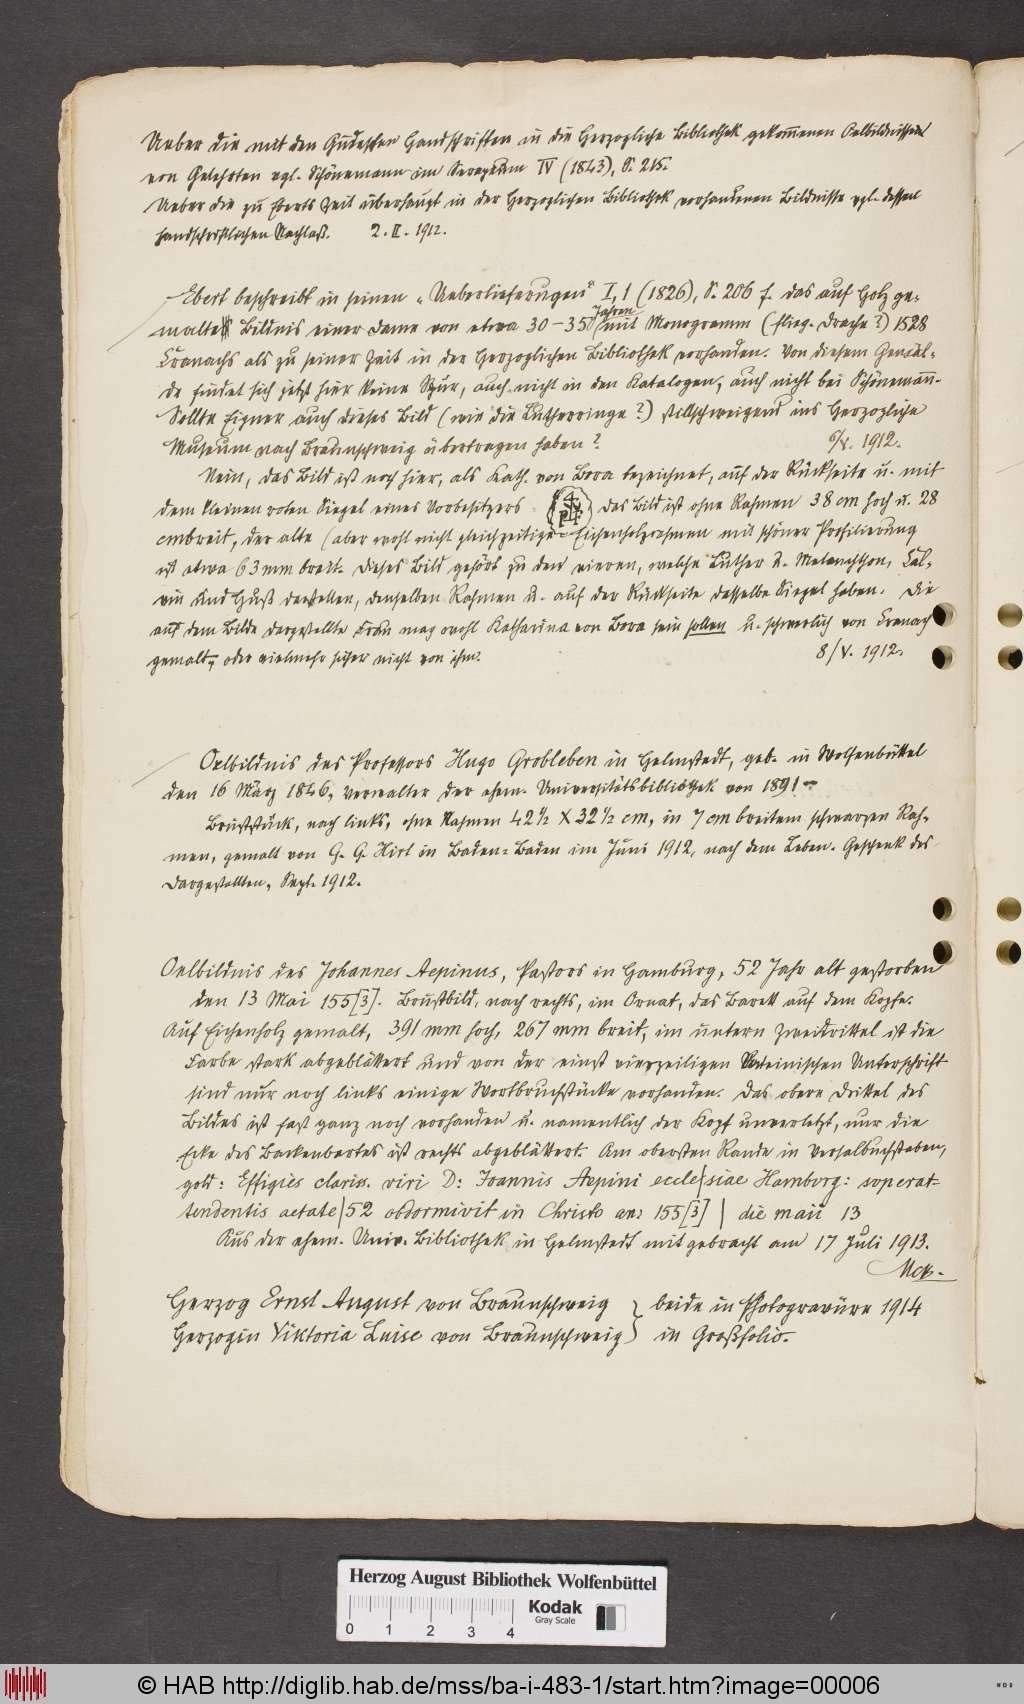 Ueber die mit den Gudeschen Handschriften in die Herzogliche Bibliothek gekommenen Oelbildnisse
von Gelehrten vgl. Schönemann im Serapeum IV (1843), S. 215.
Ueber die zu Eberts Zeit überhaupt in der Herzoglichen Bibliothek vorhandenen Bildnisse vgl. dessen
handschriftlichen Nachlaß. 2. II. 1912.
Ebert beschreibt in seinen „Ueberlieferungen" I, 1 (1826), S. 206 f. das auf Holz ge-
malte Bildnis einer Dame von etwa 30-35 Jahren mit Monogramm (flieg. Drache?) 1528
Cranachs als zu seiner Zeit in der Herzoglichen Bibliothek vorhanden. Von diesem Gemäl-
de findet sich jetzt hier keine Spur, auch nicht in den Katalogen, auch nicht bei Schönemann.
Sollte Eigner auch dieses Bild (wie die Lutherringe?) stillschweigend ins Herzogliche
Museum nach Braunschweig übertragen haben? 6/V. 1912.
Nein, das Bild ist noch hier, als Kath. von Bora bezeichnet, auf der Rückseite u. mit
dem kleinen roten Siegel eines Vorbesitzers das Bild ist ohne Rahmen 38 cm hoch u. 28
cm breit, der alte (aber wohl nicht gleichzeitige) Eichenholzrahmen mit schöner Profilierung
ist etwa 63 mm breit. Dieses Bild gehört zu den vieren, welche Luther u. Melanchthon, Cal-
vin und Huß darstellen, denselben Rahmen u. auf der Rückseite dasselbe Siegel haben. Die
auf dem Bilde dargestellte Frau mag wohl Katharina von Bora sein sollen u. schwerlich von Cranach
gemalt, oder vielmehr sicher nicht von ihm. 8/V. 1912.
Oelbildnis des Professors Hugo Grobleben in Helmstedt, geb. in Wolfenbüttel
den 16 März 1846, Verwalter der ehem. Universitätsbibliothek von 1891-
Bruststück, nach links, ohne Rahmen 42 1/2 X 32 1/2 cm, in 7 cm breitem schwarzen Rah-
men, gemalt von G. G. Hirt in Baden-Baden im Juni 1912, nach dem Leben. Geschenk des
Dargestellten, Sept. 1912.
Oelbildnis des Johannes Aepinus, Pastors in Hamburg, 52 Jahr alt gestorben
den 13 Mai 155[3]. Brustbild, nach rechts, im Ornat, das Barett auf dem Kopfe.
Auf Eichenholz gemalt, 391 mm hoch, 267 mm breit, im untern Zweidrittel ist die
Farbe stark abgeblättert und von der einst vierzeiligen lateinischen Unterschrift
sind nur noch links einige Wortbruchstücke vorhanden. Das obere Drittel des
Bildes ist fast ganz noch vorhanden u. namentlich der Kopf unverletzt, nur die
Ecke des Backenbartes ist rechts abgeblättert. Am obersten Rande in Versalbuchstaben,
gold: Effigies clariss. viri D: Joannis Aepini eccle|siae Hamborg: soperat-
tendentis aetate|52 obdormivit in Christo an: 155[3] | die maii 13
Aus der ehem. Univ. Bibliothek in Helmstedt mitgebracht am 17 Juli 1913.
Herzog Ernst August von Braunschweig } beide in Photogravüre 1914
Herzogin Viktoria Luise von Braunschweig } in Großfolio.
Herzog August Bibliothek Wolfenbüttel
0 1 2 3 4
Kodak
Gray Scale
© HAB http://diglib.hab.de/mss/ba-i-483-1/start.htm?image=00006